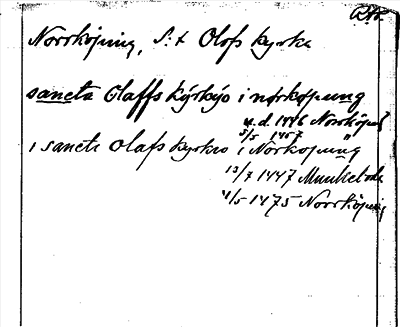 Norrköping, S:t Olofs kyrka
sancta Olaffs kyrkyo i norkopung
u.d. 1446 Norrköping
5/5 1457 "
i sancte Olafs kyrkio i Norkopung
13/7 1447 Munketoda
4/5 1475 Norrköping